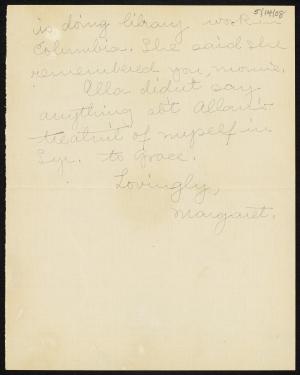 5/14/08
is doing library work in
Columbia. She said she
remembered you, momie.
Ella didn't say
anything abt Allan's
treatm't of myself in
Syr. to Grace.
Lovingly,
Margaret.